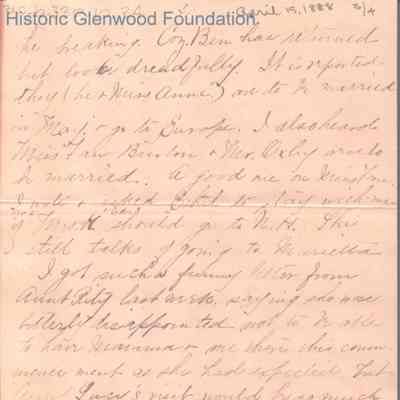 April 19, 1888 3/4
Historic Glenwood Foundation.
he speaking. Coz. Ben has returned
but looks dreadfully. It is reported
they (he & Nurse Anne?) are to be married
in May & go to Europe. I also heard
Miss Fan Benton & Mr. Oxley were to
be married. A good one on
I to stay with
if should go to N.H. This
still talks of going to Marietta
I got such a funny letter from
Aunt Kity last week, saying she was
bitterly disappointed not to be able
to have Mamma & me there this com-
mencement as she had expected but
Aunt Lucy's visit would be as much